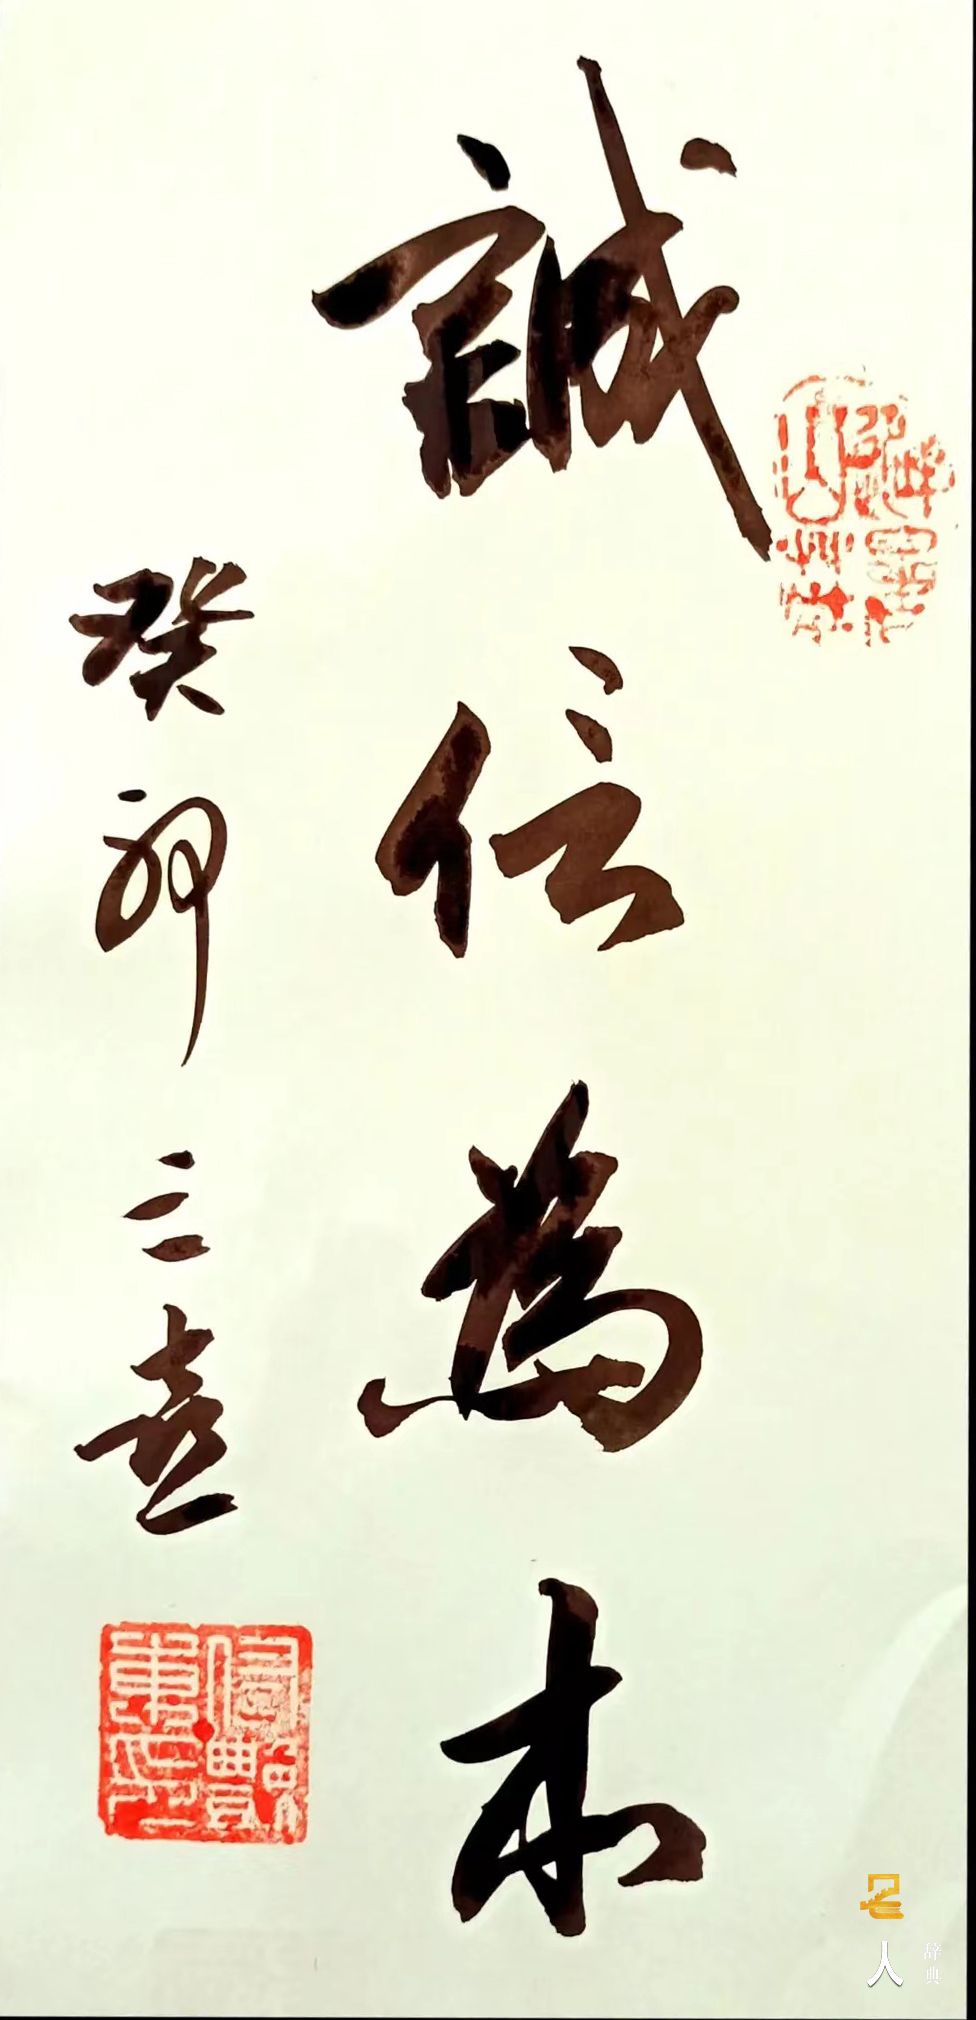 誠信為本
癸卯三喜
名人
辞典